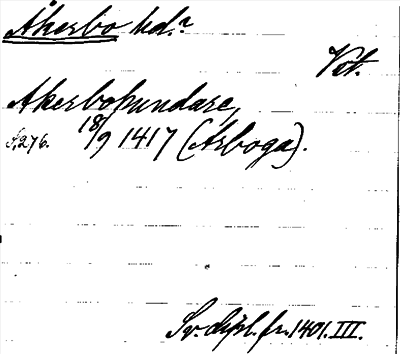 Åkerbo hd.?
Vst.
Akerbohundare,
s. 276. 18/9 1417 (Arboga).
Sv. dipl. fr. 1401. III.